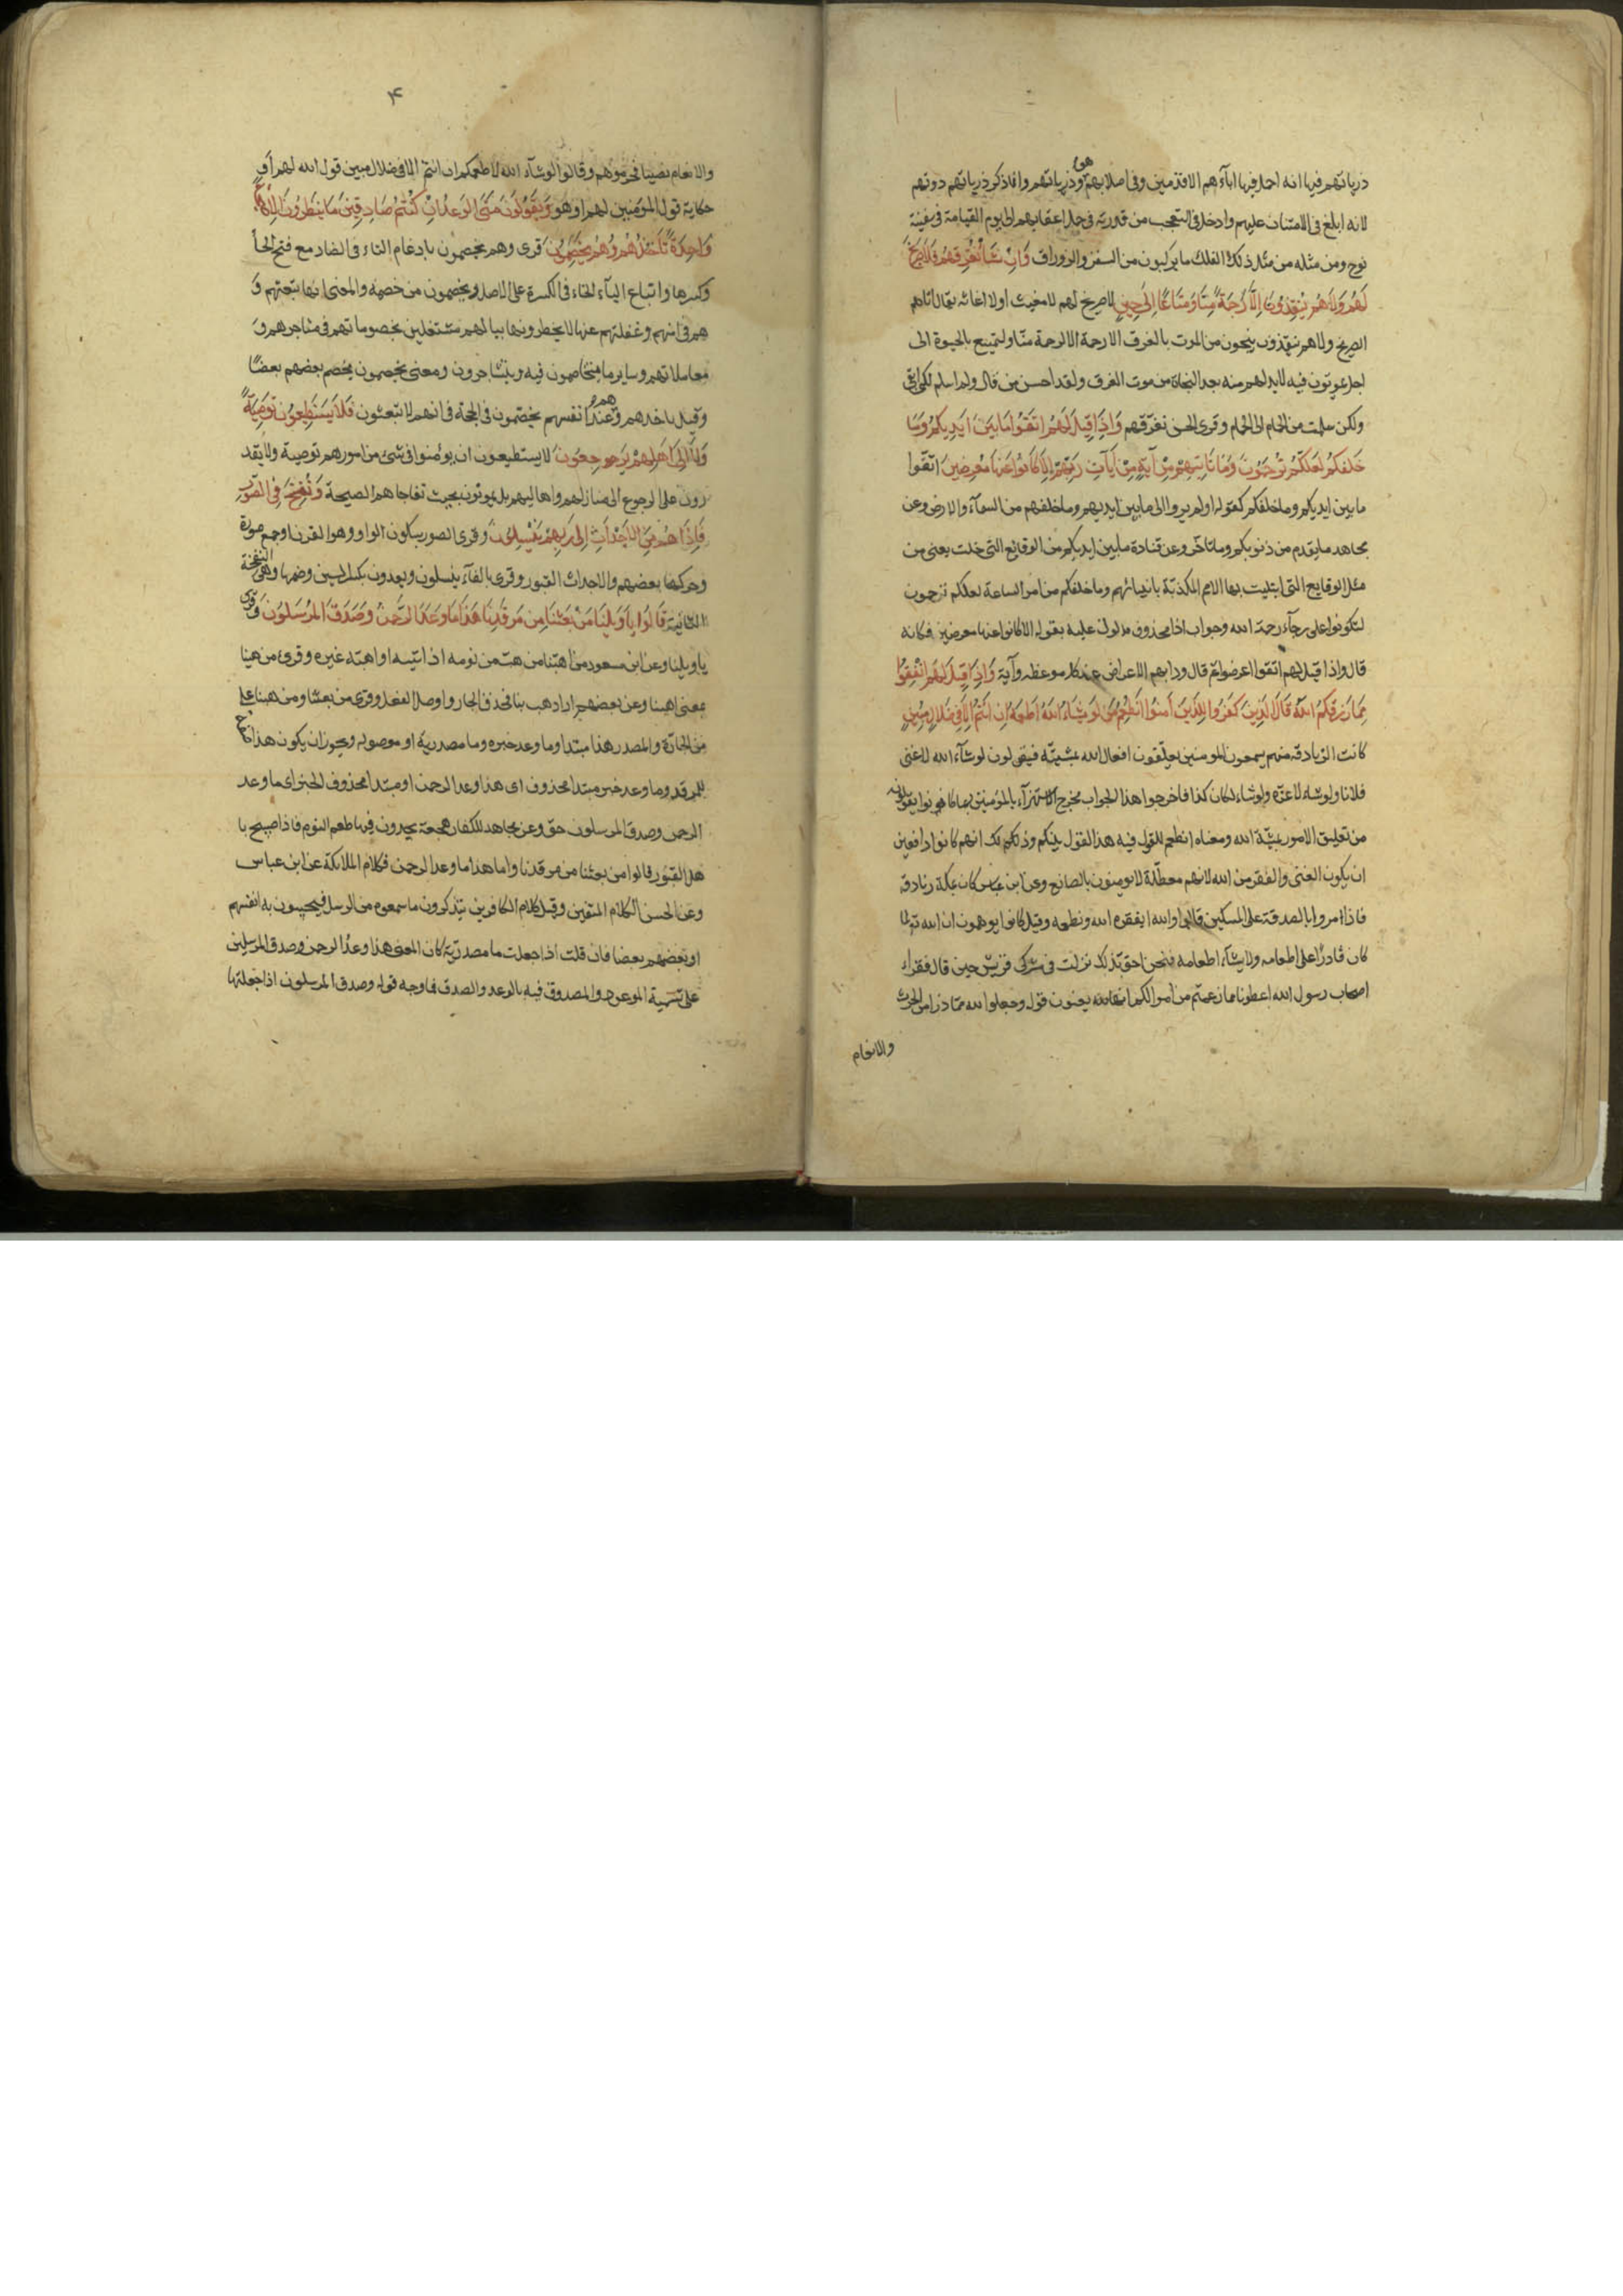 ذرياتهم فيها انه احمل فيها اباءهم الاقدمين وفى اصلابهم هم وذرياتهم وانما ذكر ذرياتهم دونهم
لانه ابلغ فى الامتنان عليهم وادخل فى التعجب من قدرته فى حمل اعقابهم الى يوم القيامة فى سفينة
نوح ومن مثله من مثل ذلك الفلك ما يركبون من السفن والزوراق وَاِنْ نَشَأْ نُغْرِقْهُمْ فَلَا صَرِيخَ
لَهُمْ وَلَا هُمْ يُنْقَذُونَ اِلَّا رَحْمَةً مِنَّا وَمَتَاعًا اِلَى حِينٍ لا صريخ لهم لا مغيث اولا اغاثة يقال اتاهم
الصريخ ولا هم ينقذون ينجون من الموت بالغرق الا رحمة الا لرحمة منا ولتمتيع بالحيوة الى
اجل يموتون فيه لا بد لهم منه بعد النجاة من موت الغرق ولقد احسن من قال ولم اسلم لكى ابقى
ولكن سلمت من الحمام الى الحمام وقرئ الحسن نغرّقهم وَاِذَا قِيلَ لَهُمُ اتَّقُوا مَا بَيْنَ اَيْدِيكُمْ وَمَا
خَلْفَكُمْ لَعَلَّكُمْ تُرْحَمُونَ وَمَا تَاتِيهِمْ مِنْ آيَةٍ مِنْ آيَاتِ رَبِّهِمْ اِلَّا كَانُوا عَنْهَا مُعْرِضِينَ اتقوا
ما بين ايديكم وما خلفكم كقوله اولم يروا الى ما بين ايديهم وما خلفهم من السمآء والارض وعن
مجاهد ما يقدم من ذنوبكم وما تاخّر وعن قتادة ما بين ايديكم من الوقائع التى خلت يعنى من
مثل الوقايع التى ابتليت بها الامم المكذبة بانبيائهم وما خلفكم من امر الساعة لعلكم ترحمون
لتكونوا على رجآء رحمة الله وجواب اذا محذوف مدلول عليه بقوله الا كانوا عنها معرضين فكانه
قال واذا قيل لهم اتقوا اعرضوا ثم قال ودابهم الاعراض عند كل موعظة وآية وَاِذَا قِيلَ لَهُمْ اَنْفِقُوا
مِمَّا رَزَقَكُمُ اللّهُ قَالَ الَّذِينَ كَفَرُوا لِلَّذِينَ آمَنُوا اَنُطْعِمُ مَنْ لَوْ يَشَاءُ اللّهُ اَطْعَمَهُ اِنْ اَنْتُمْ اِلَّا فِي ضَلَالٍ مُبِينٍ
كانت الزنادقة منهم يسمعون المومنين يعلّقون افعال الله بمشيّته فيقولون لو شآء الله لاغنى
فلانا ولو شاء لاعزّه ولو شاء لكان كذا فاخرجوا هذا الجواب مخرج الاستهزآء بالمؤمنين بما كانوا يقولونه
من تعليق الامور بمشيّة الله ومعناه انطعم المقول فيه هذا القول بينكم وذلك انهم كانوا دافعين
ان يكون الغنى والفقر من الله لانهم معطّلة لا يومنون بالصانع وعن ابن عباس كان بمكة زنادقة
فاذا امروا بالصدقة على المساكين قالوا لا والله ايفقره الله ونطعمه وقيل كانوا يوهمون ان الله تعالى لما
كان قادرًا على اطعامه ولا يشآء اطعامه فنحن احقّ بذلك نزلت فى مشركى قريش حين قال فقراء
اصحاب رسول الله اعطونا مما زعمتم من اموالكم انها لله يعنون قوله وجعلوا لله ممّا ذرا من الحرث
والانعام
۴
والانعام نصيبا فحرموهم وقالوا لو شآء الله لاطعمكم ان انتم الا فى ضلال مبين قول الله لهم او
حكاية قول المؤمنين لهم او هو وَيَقُولُونَ مَتَى الْوَعْدُ اِنْ كُنْتُمْ صَادِقِينَ مَا يَنْظُرُونَ اِلَّا صَيْحَةً
وَاحِدَةً تَاْخُذُهُمْ وَهُمْ يَخِصِّمُونَ قرئ وهم يخصمون بادغام التاء فى الصاد مع فتح الخآ
وكسرها واتباع اليآء الخاء فى الكسرة على الاصل ويخصمون من خصمه والمعنى انها تبغتهم و
هم فى امنهم وغفلتهم عنها لا يخطرونها ببالهم مشتغلين بخصوماتهم فى متاجرهم و
معاملاتهم وساير ما يتخاصمون فيه ويتشاجرون ومعنى يخصمون يخصم بعضهم بعضًا
وقيل ياخذهم وهم عند انفسهم يخصّمون فى الحجة فى انهم لا تبعثون فَلَا يَسْتَطِيعُونَ تَوْصِيَةً
وَلَا اِلَى اَهْلِهِمْ يَرْجِعُونَ لا يستطيعون ان يوصوا فى شئ من امورهم توصية ولا يقد
رون على الرجوع الى منازلهم واهاليهم بل يموتون بحيث تفاجاهم الصيحة وَنُفِخَ فِى الصُّورِ
فَاِذَا هُمْ مِنَ الْاَجْدَاثِ اِلَى رَبِّهِمْ يَنْسِلُونَ وقرئ الصور بسكون الواو وهو القرن او جمع صورة
وحركها بعضهم والاجداث القبور وقرئ بالفآء ينسلون ويعدون بكسر السين وضمها وهى النفخة
الثانية قَالُوا يَا وَيْلَنَا مَنْ بَعَثَنَا مِنْ مَرْقَدِنَا هَذَا مَا وَعَدَ الرَّحْمَنُ وَصَدَقَ الْمُرْسَلُونَ وقرئ
يا ويلتنا وعن ابن مسعود من اهبّنا من هبّ من نومه اذا انتبه او اهبّه غيره وقرئ من هبنا
بمعنى اهبنا وعن بعضهم اراد هب بنا فحذف الجار واوصل الفعل وقرئ من بعثنا ومن هبنا على
من الجارّة والمصدر هذا مبتدا وما وعد خبره وما مصدرية او موصولة ويجوز ان يكون هذا
للمرقد وما وعد خبر مبتدا محذوف اى هذا وعد الرحمن او مبتدا محذوف الخبر اى ما وعد
الرحمن وصدق المرسلون حقّ وعن مجاهد للكفار هجعة يجدون فيها طعم النوم فاذا صيح با
هل القبور قالوا من بعثنا من مرقدنا واما هذا ما وعد الرحمن فكلام الملائكة عن ابن عباس
وعن الحسن الكلام المتقين وقيل كلام الكافرين يتذكرون ما سمعوه من الرسل فيجيبون به انفسهم
او بعضهم بعضا فان قلت اذا جعلت ما مصدريّة كان المعنى هذا وعدُ الرحمن وصدق المرسلين
على تسمية الموعود والمصدوق فيه بالوعد والصدق فما وجه قوله وصدق المرسلون اذا جعلتها